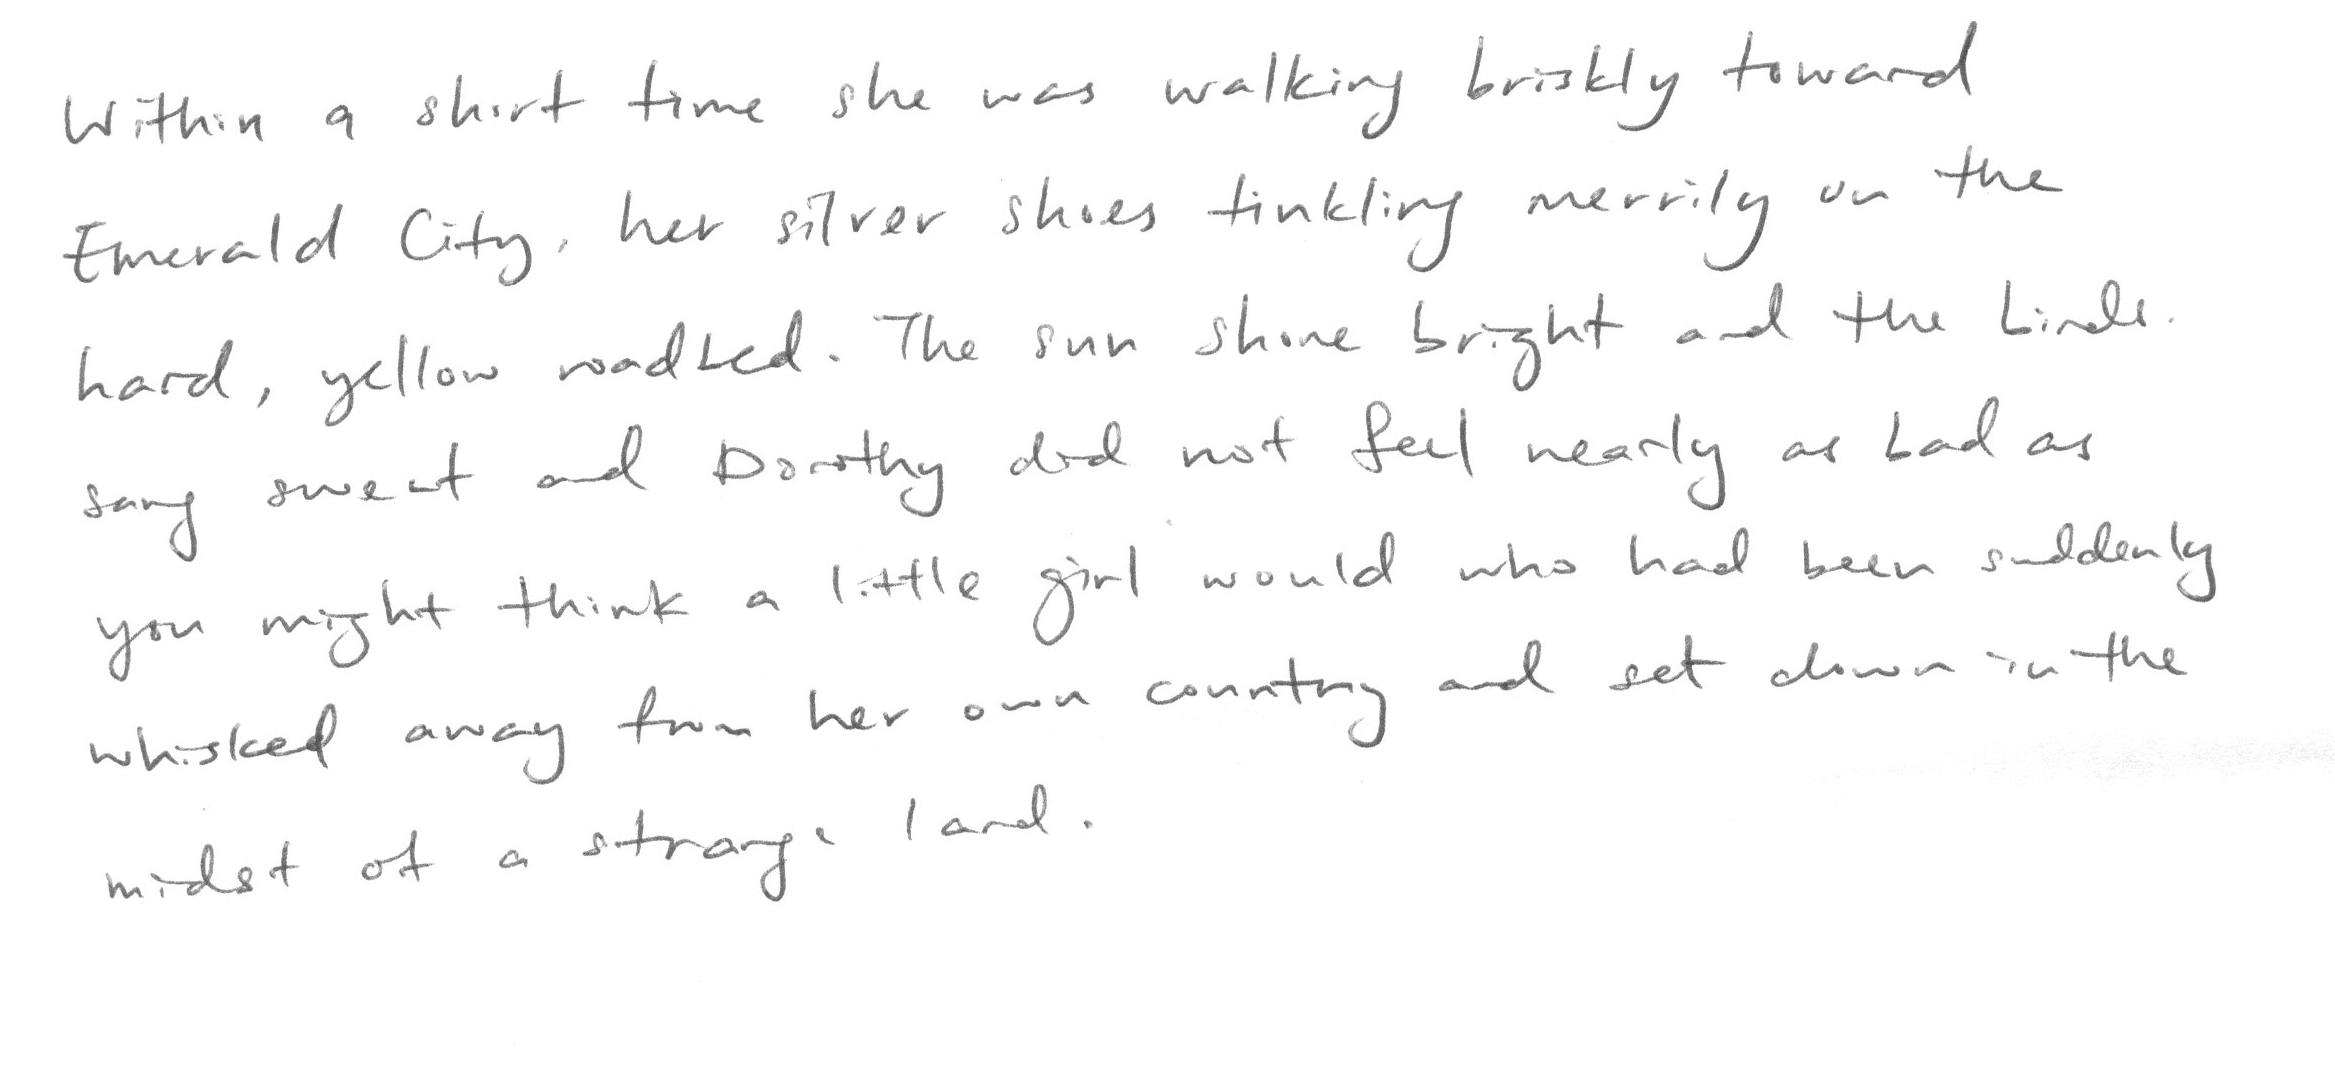 Within a short time she was walking briskly toward
Emerald City, her silver shoes tinkling merrily on the
hard, yellow roadbed. The sun shone bright and the birds
sang sweet and Dorothy did not feel nearly as bad as
you might think a little girl would who had been suddenly
whisked away from her own country and set down in the
midst of a strange land.